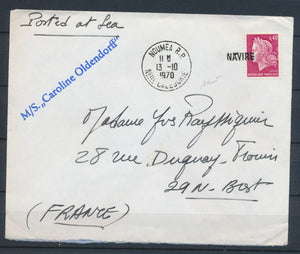 Posted at Sea
M/S. „Caroline Oldendorff"
NOUMEA R.P.
11 H
13 -10
1970
NLLE CALEDONIE
NAVIRE
0,40
REPUBLIQUE FRANCAISE
Madame Yves
28 rue Duguay Trouin
29 N. Brest
(FRANCE)